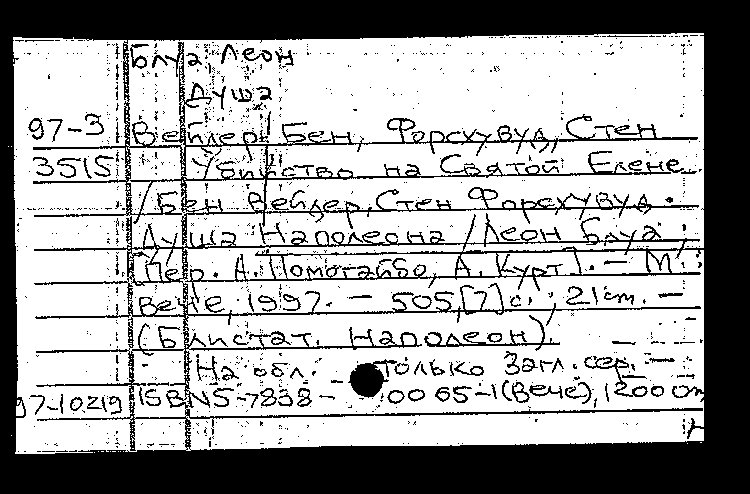 Блуа, Леон
Душа
97-3 Вейдер, Бен, Форсхувуд, Стен
3515 Убийство на Святой Елене
/ Бен Вейдер, Стен Форсхувуд.
Душа Наполеона / Леон Блуа;
[Пер. А. Помогайбо, А. Курт]. - М.:
Вече, 1997. - 505,[7] с.; 21 см. -
(Блистат. Наполеон).
На обл. только загл. сер. -
97-10219 ISBN 5-7838- 0065-1 (Вече), 1200